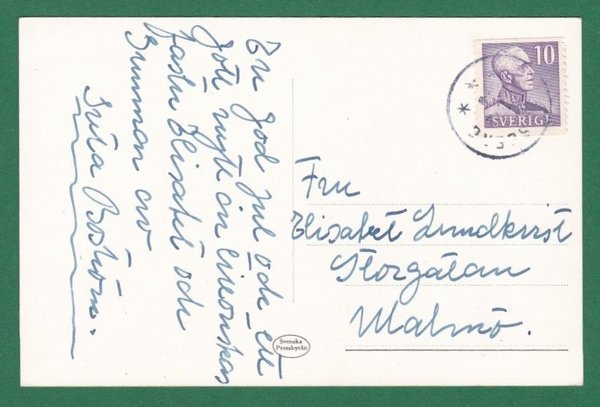 En god jul och ett
gott nytt år önskas
faster Elisabet och
Gumman av
Brita Boström.
10
SVERIGE
Fru
Elisabet Lundkvist
Storgatan
Malmö.
Svenska
Pressbyrån